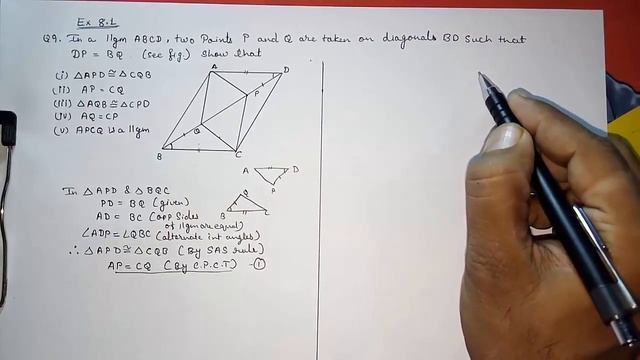 Ex 8.1
Q9. In a ||gm ABCD, two Points P and Q are taken on diagonals BD Such that
DP = BQ (see fig.) Show that
(i) △APD ≅ △CQB
(ii) AP = CQ
(iii) △AQB ≅ △CPD
(iv) AQ = CP
(v) APCQ is a ||gm
A
D
P
Q
B
C
A D
P
Q
B C
In △APD & △BQC
PD = BQ (given)
AD = BC (opp Sides
of ||gm are equal)
∠ADP = ∠QBC (alternate int angles)
∴ △APD ≅ △CQB (By SAS rule)
AP = CQ (By C.P.C.T) - ①